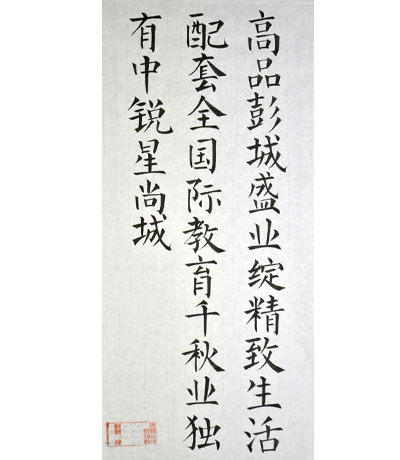 高品彭城盛业绽精致生活
配套全国际教育千秋业独
有中锐星尚城